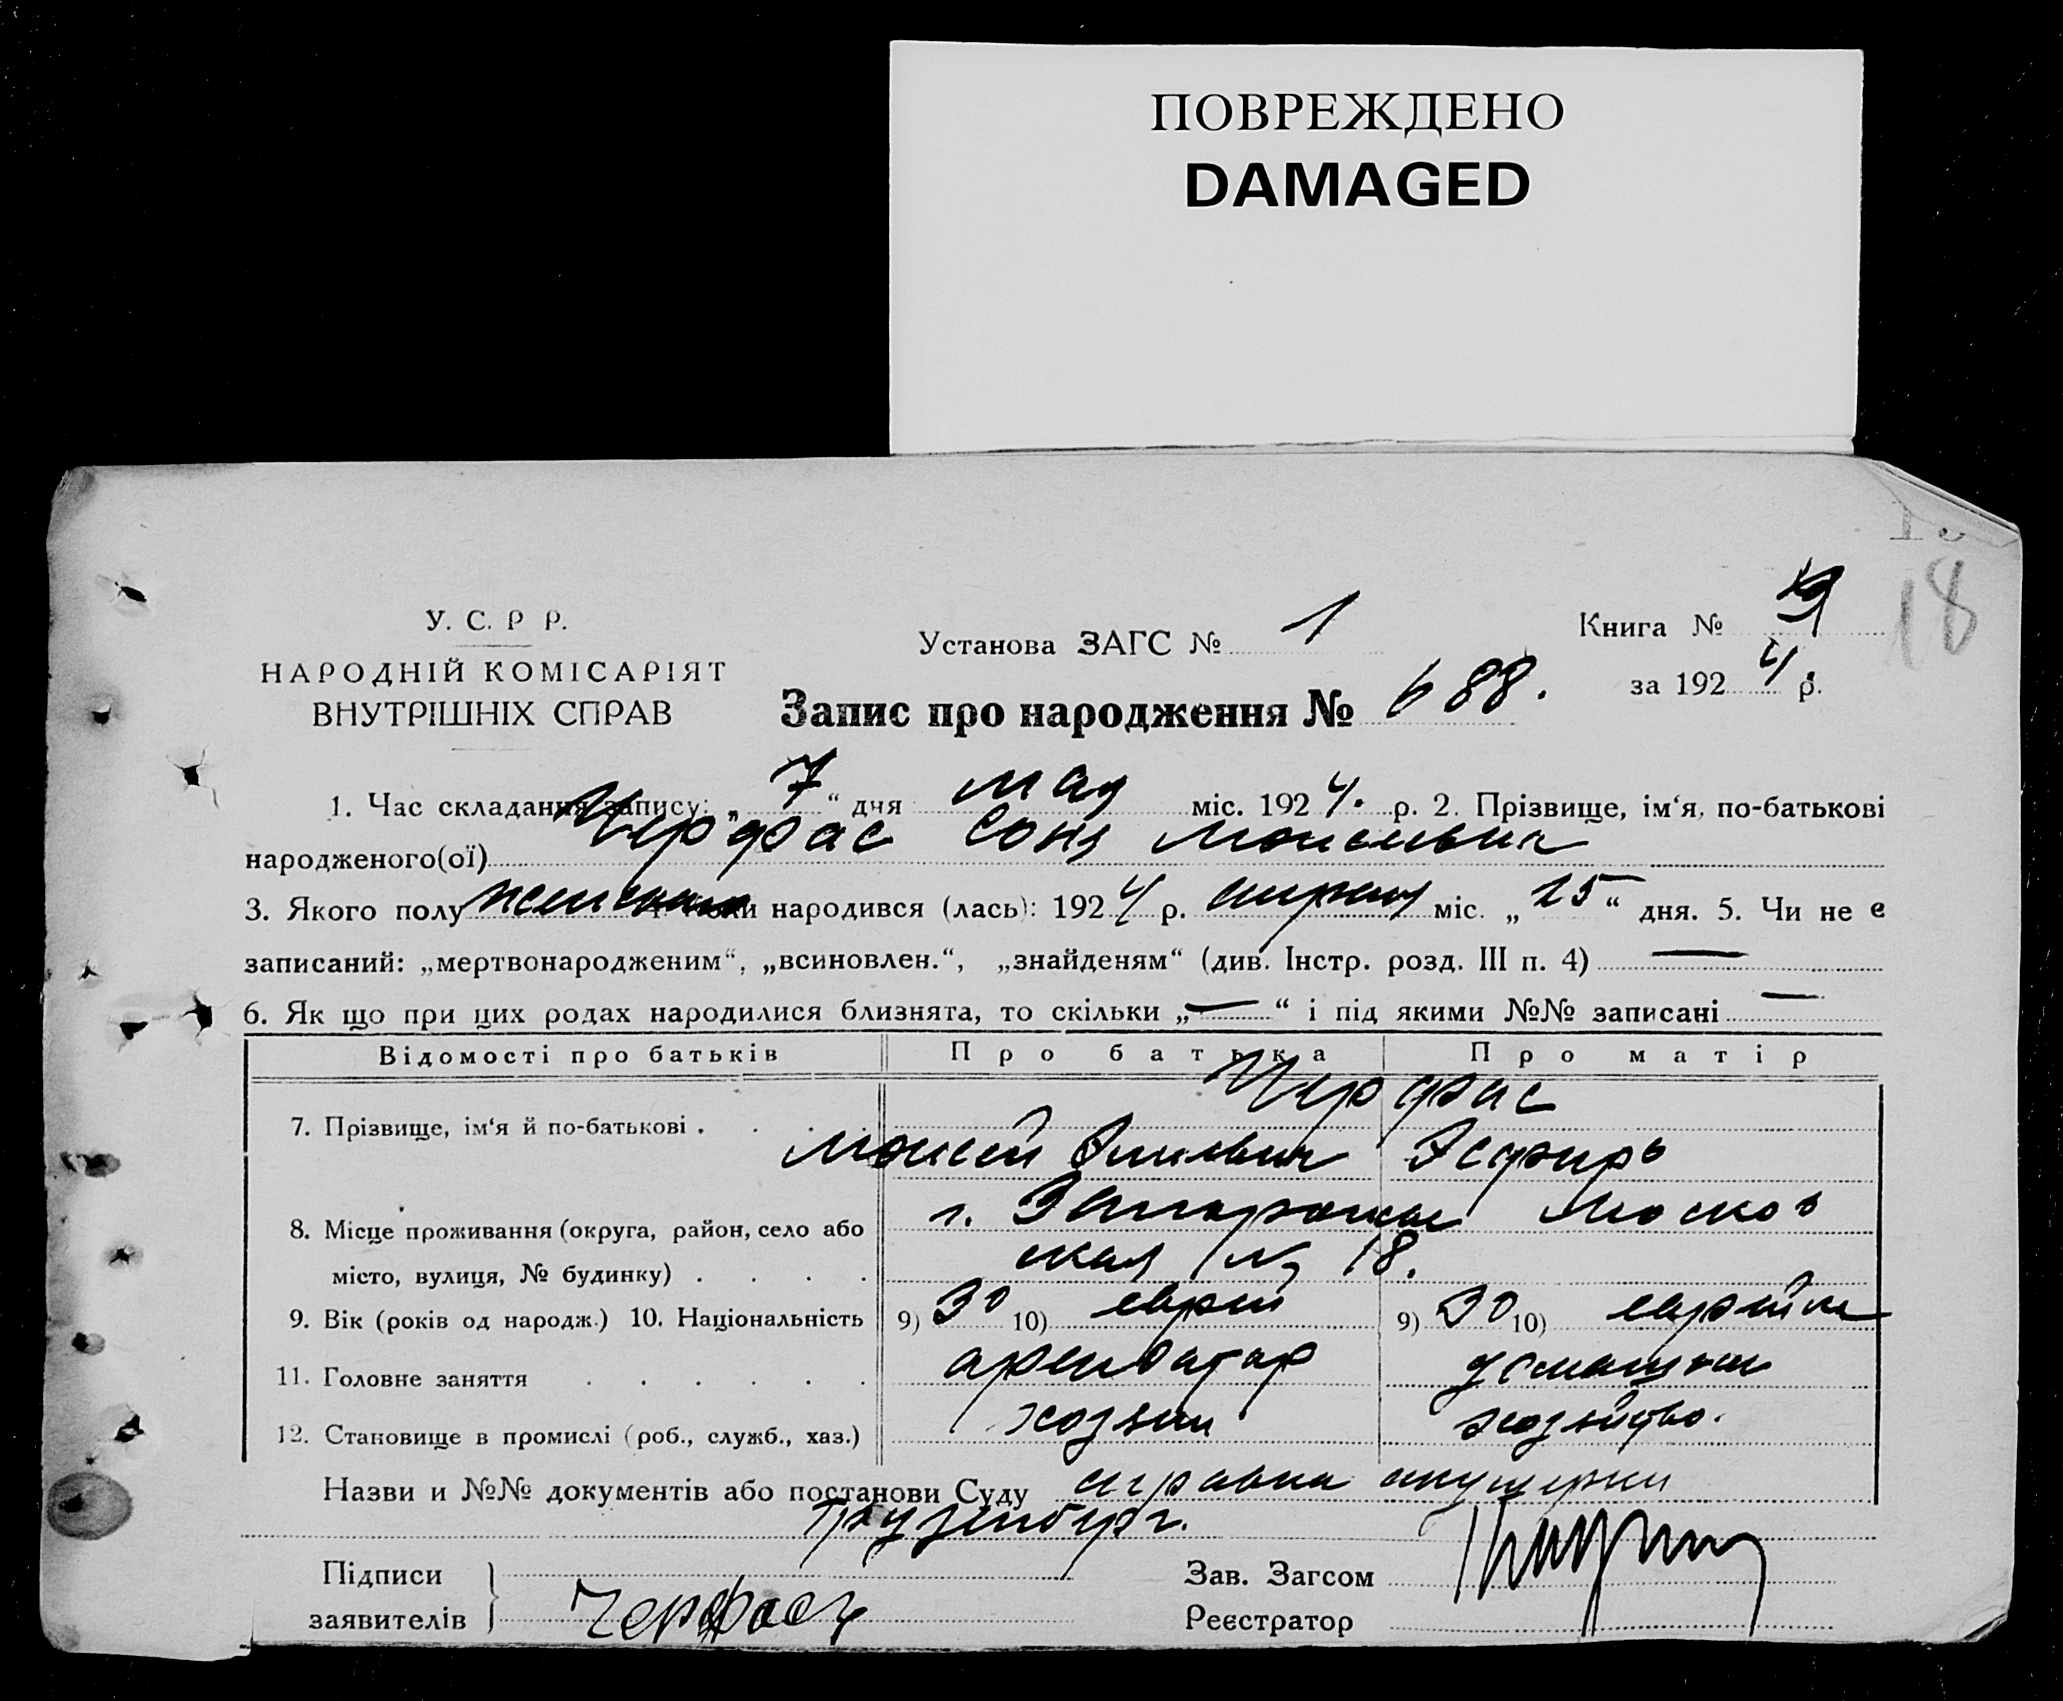 ПОВРЕЖДЕНО
DAMAGED
18
У. С. Р Р.
НАРОДНІЙ КОМІСАРІЯТ
ВНУТРІШНІХ СПРАВ
Установа ЗАГС № 1
Книга № 9
за 1924 р.
Запис про народження № 688.
1. Час складання запису: „7“ дня мая міс. 1924. р. 2. Прізвище, ім‘я, по-батькові
народженого(ої) Черфас Соня Моисеевна
3. Якого полу женский 4. Коли народився (лась): 1924 р. апреля міс. „25“ дня. 5. Чи не є
записаний: „мертвонародженим“, „всиновлен.“, „знайденям“ (див. Інстр. розд. III п. 4) —
6. Як що при цих родах народилися близнята, то скільки „—“ і під якими №№ записані —
Відомості про батьків Про батька Про матір
Черфас
7. Прізвище, ім‘я й по-батькові . . . . Моисей Эсфирь
8. Місце проживання (округа, район, село або г. Запорожье Москов
місто, вулиця, № будинку) . . . . ская № 18.
9. Вік (років од народж.) 10. Національність 9) 30 10) еврей 9) 30 10) еврейка
11. Головне заняття . . . . . . арендатор домашнее
12. Становище в промислі (роб., служб., хаз.) хозяин хозяйство.
Назви и №№ документів або постанови Суду справка акушерки
Підписи
заявителів } Черфас
Зав. Загсом
Реєстратор